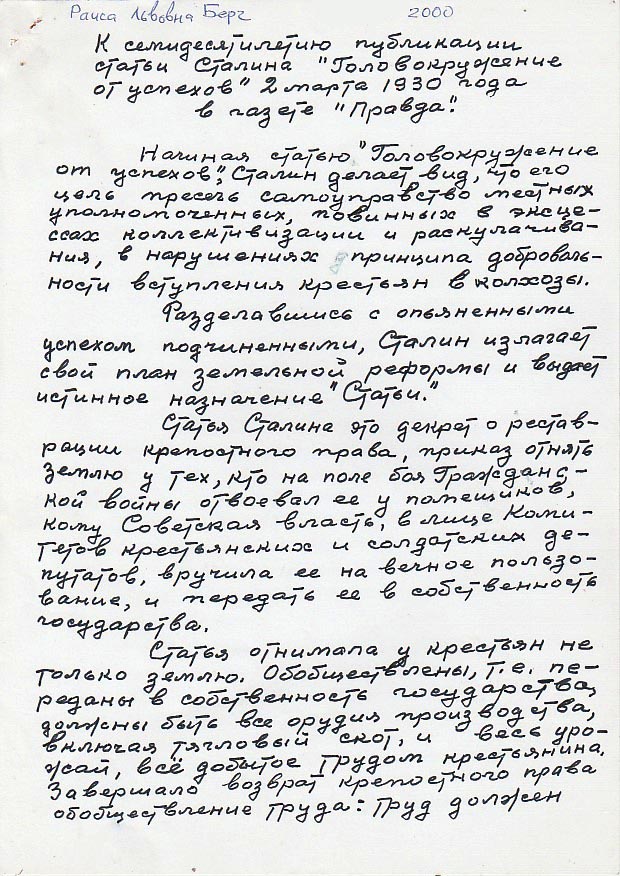 Раиса Львовна Берг 2000
К семидесятилетию публикации
статьи Сталина "Головокружение
от успехов" 2 марта 1930 года
в газете "Правда".
Начиная статью "Головокружение
от успехов", Сталин делает вид, что его
цель пресечь самоуправство местных
уполномоченных, повинных в эксце-
ссах коллективизации и раскулачива-
ния, в нарушениях принципа доброволь-
ности вступления крестьян в колхозы.
Разделавшись с опьяненными
успехом подчиненными, Сталин излагает
свой план земельной реформы и выдает
истинное назначение "Статьи."
Статья Сталина это декрет о рестав-
рации крепостного права, приказ отнять
землю у тех, кто на поле боя Гражданс-
кой войны отвоевал ее у помещиков,
кому Советская власть, в лице Коми-
тетов крестьянских и солдатских де-
путатов, вручила ее на вечное пользо-
вание, и передать ее в собственность
государства.
Статья отнимала у крестьян не
только землю. Обобществлены, т.е. пе-
реданы в собственность государства,
должны быть все орудия производства,
включая тягловый скот, и весь уро-
жай, всё добытое трудом крестьянина.
Завершало возврат крепостного права
обобществление труда: труд должен